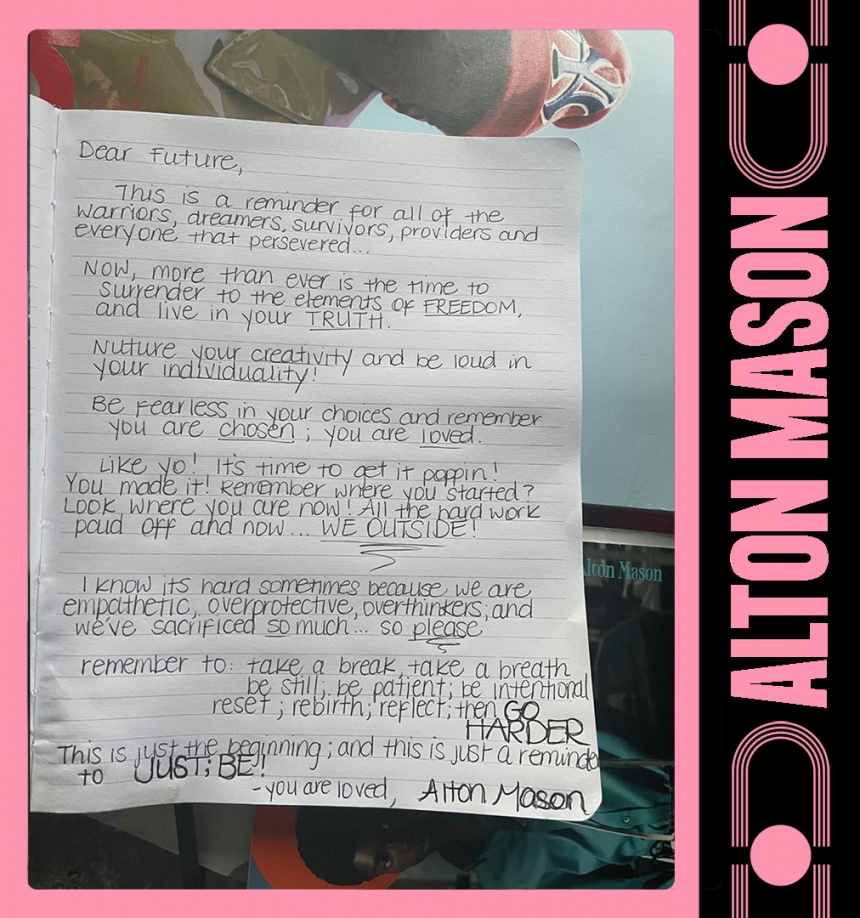 Dear Future,
This is a reminder for all of the
warriors, dreamers, survivors, providers and
everyone that persevered...
NOW, more than ever is the time to
surrender to the elements of FREEDOM,
and live in your TRUTH.
Nuture your creativity and be loud in
your individuality!
Be Fearless in your choices and remember
you are chosen ; you are loved.
Like yo! It's time to get it poppin!
You made it! Remember where you started?
Look where you are now! All the hard work
paid off and now... WE OUTSIDE!
I know its hard sometimes because we are
empathetic, overprotective, overthinkers; and
we've sacrificed so much... so please
remember to: take a break, take a breath
be still; be patient; be intentional
reset ; rebirth; reflect; then GO
HARDER
This is just the beginning ; and this is just a reminder
to JUST; BE!
- you are loved, Alton Mason
Alton Mason
ALTON MASON